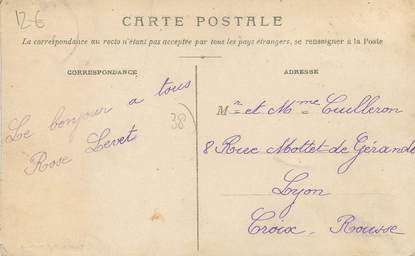 12€
CARTE POSTALE
La correspondance au recto n'étant pas acceptée par tous les pays étrangers, se renseigner à la Poste
CORRESPONDANCE
Le bonjour a tous
Rose Levet
38
ADRESSE
Mr et Mme Cuilleron
8 Rue Mottet de Gérando
Lyon
Croix-Rousse